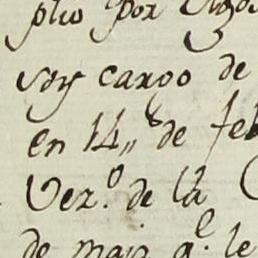 plio por
soy cargo de
en 14,, de feb
Vez.º de la
de maiz q.e le